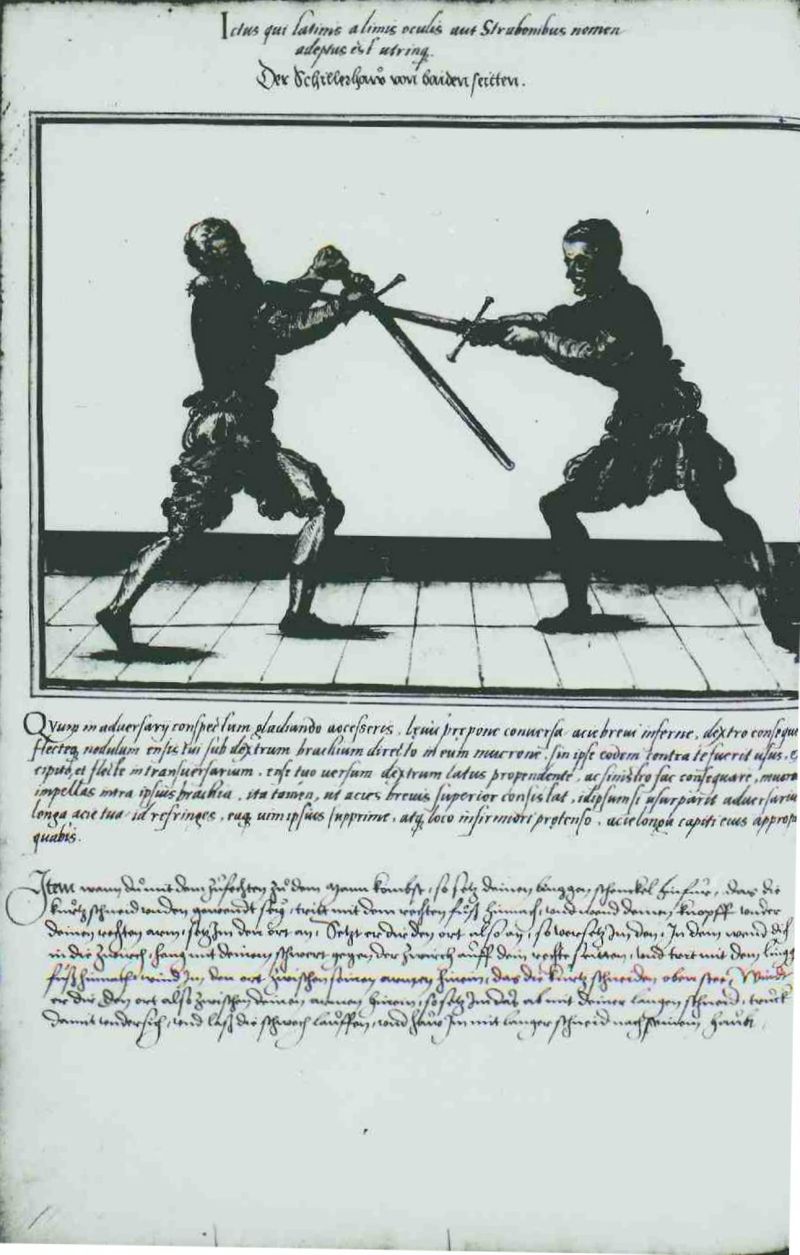 Ictus qui latinis a limis oculis aut Strabonibus nomen
adeptus est utrinq.
Der Schillerhaw von baiden seitten.
Quum in adversarij conspectum gladiando accesseris, laevum praepone conversa acie brevi inferne, dextro consequ
flecteq nodulum ensis tui sub dextrum brachium directo in eum mucrone, sin ipse eodem contra te fuerit usus, e
cipito, et flecte in transversarium, ense tuo versum dextrum latus propendente, ac sinistro fac consequare, mucro
impellas intra ipsius brachia, ita tamen, ut acies brevis superior consistat, id ipsum si usurparit adversariu
longa acie tua id refringes, eaq vim ipsius supprime, atq loco infirmiori protenso, acie longa capiti eius approp
quabis.
Item wann du mit dem zufechten zu dem Mann kombst, so setz deinen linggen schenckel hinfür, das die
kurtz schneid unden gewendt sey, trit mit dem rechten fuß hinnach, und wend deinen knopff under
deinen rechten arm, setz Im den ort an, Setzt er dir den ort also an, so versetz Im den, In dem wend dich
in die zwirch, hang mit deinem schwert gegen der zwirch auff dein rechte seitten, und trit mit dem lingg
fuß hinnach, wind Im den ort zwischen seinen armen hinein, das die kurtz schneiden oben stee, Windt
er dir den ort also zwischen deinen armen hinein, so setz Im das ab mit deiner langen schneid, truck
damit undersich, und laß die schwech lauffen, und haw Im mit langer schneid nach seinem haubt.